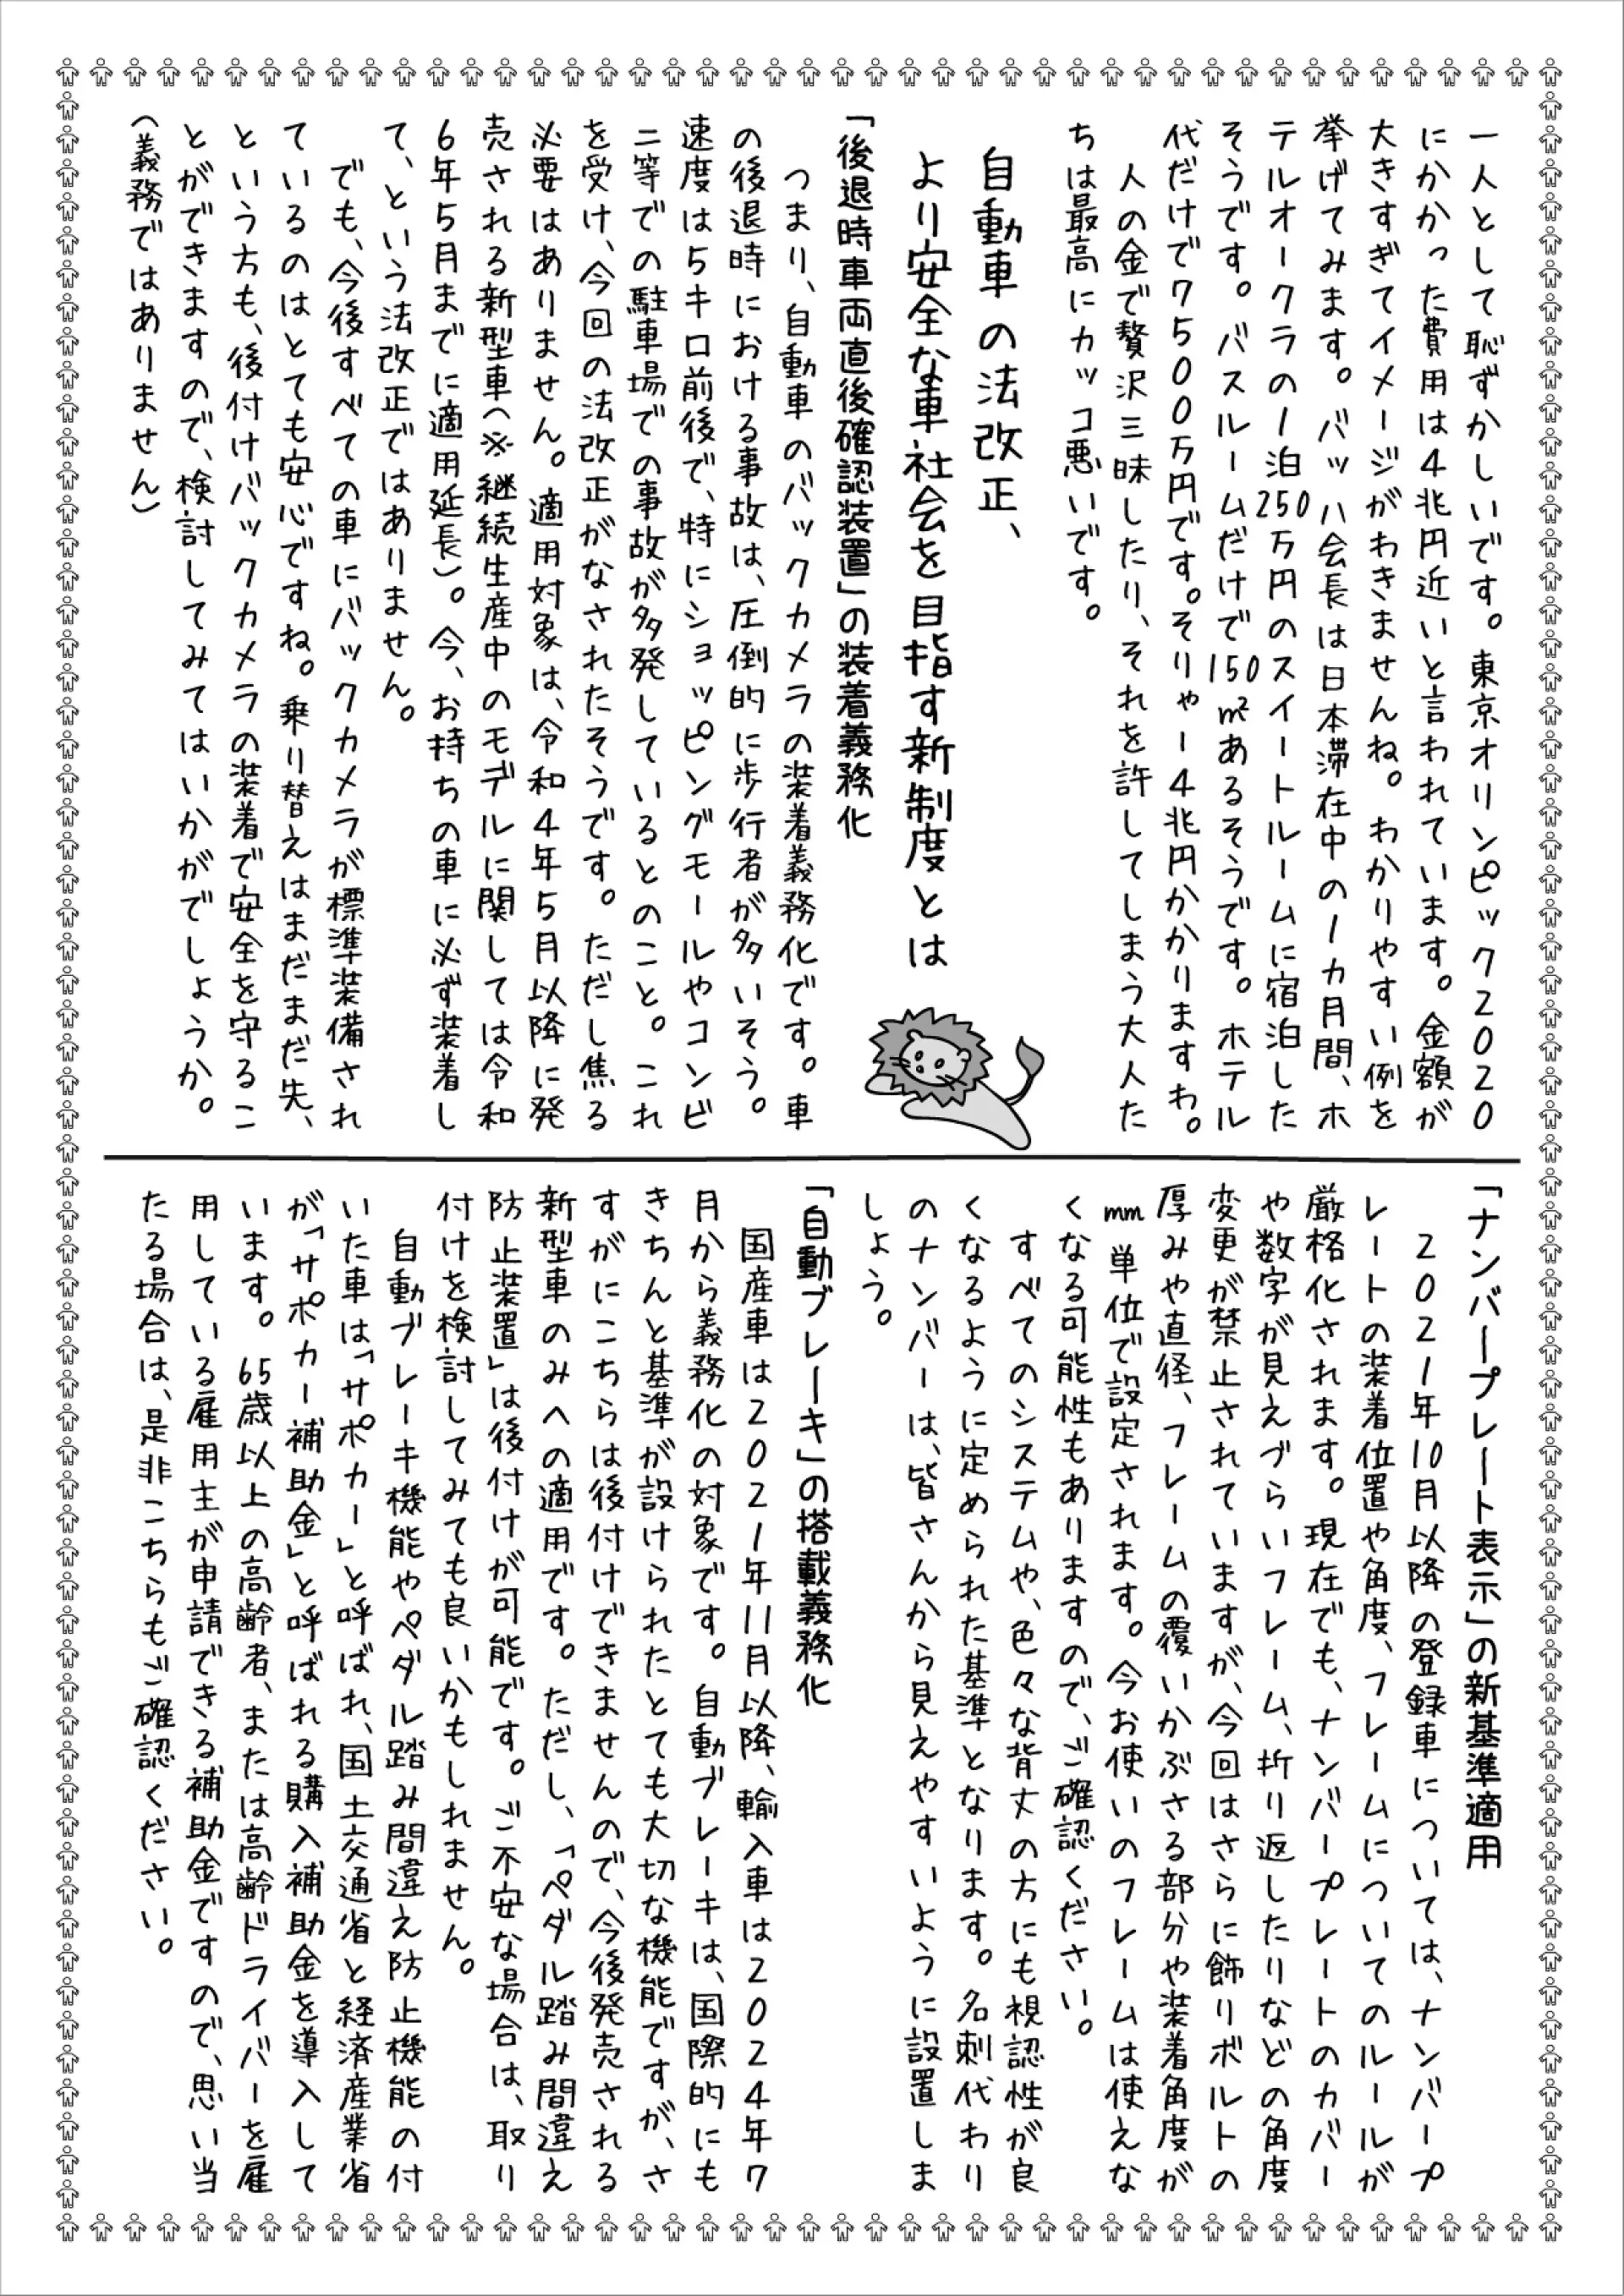 一人として恥ずかしいです。東京オリンピック2020
にかかった費用は4兆円近いと言われています。金額が
大きすぎてイメージがわきませんね。わかりやすい例を
挙げてみます。バッハ会長は日本滞在中の1カ月間、ホ
テルオークラの1泊250万円のスイートルームに宿泊した
そうです。バスルームだけで150㎡あるそうです。ホテル
代だけで7500万円です。そりゃー4兆円かかりますわ。
人の金で贅沢三昧したり、それを許してしまう大人た
ちは最高にカッコ悪いです。
自動車の法改正、
より安全な車社会を目指す新制度とは
「後退時車両直後確認装置」の装着義務化
つまり、自動車のバックカメラの装着義務化です。車
の後退時における事故は、圧倒的に歩行者が多いそう。
速度は5キロ前後で、特にショッピングモールやコンビ
ニ等での駐車場での事故が多発しているとのこと。これ
を受け、今回の法改正がなされたそうです。ただし焦る
必要はありません。適用対象は、令和4年5月以降に発
売される新型車(※継続生産中のモデルに関しては令和
6年5月までに適用延長)。今、お持ちの車に必ず装着し
て、という法改正ではありません。
でも、今後すべての車にバックカメラが標準装備され
ているのはとても安心ですね。乗り替えはまだまだ先、
という方も、後付けバックカメラの装着で安全を守るこ
とができますので、検討してみてはいかがでしょうか。
(義務ではありません)
「ナンバープレート表示」の新基準適用
2021年10月以降の登録車については、ナンバープ
レートの装着位置や角度、フレームについてのルールが
厳格化されます。現在でも、ナンバープレートのカバー
や数字が見えづらいフレーム、折り返したりなどの角度
変更が禁止されていますが、今回はさらに飾りボルトの
厚みや直径、フレームの覆いかぶさる部分や装着角度が
mm単位で設定されます。今お使いのフレームは使えな
くなる可能性もありますので、ご確認ください。
すべてのシステムや、色々な背丈の方にも視認性が良
くなるように定められた基準となります。名刺代わり
のナンバーは、皆さんから見えやすいように設置しま
しょう。
「自動ブレーキ」の搭載義務化
国産車は2021年11月以降、輸入車は2024年7
月から義務化の対象です。自動ブレーキは、国際的にも
きちんと基準が設けられたとても大切な機能ですが、さ
すがにこちらは後付けできませんので、今後発売される
新型車のみへの適用です。ただし、「ペダル踏み間違え
防止装置」は後付けが可能です。ご不安な場合は、取り
付けを検討してみても良いかもしれません。
自動ブレーキ機能やペダル踏み間違え防止機能の付
いた車は「サポカー」と呼ばれ、国土交通省と経済産業省
が「サポカー補助金」と呼ばれる購入補助金を導入して
います。65歳以上の高齢者、または高齢ドライバーを雇
用している雇用主が申請できる補助金ですので、思い当
たる場合は、是非こちらもご確認ください。